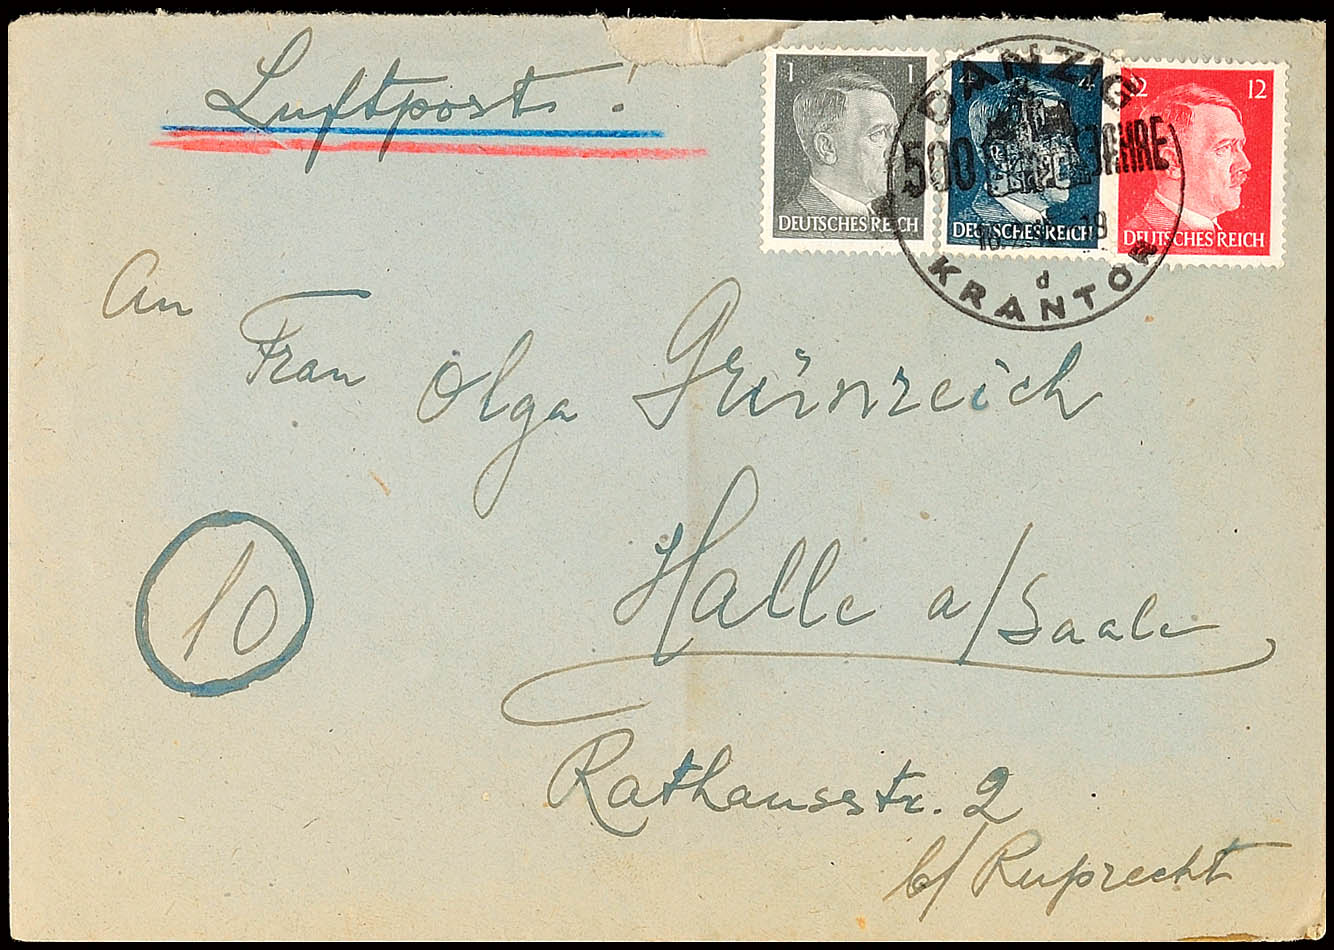 Luftpost!
1 1
DEUTSCHES REICH
4 4
DEUTSCHES REICH
12 12
DEUTSCHES REICH
DANZIG
500 JAHRE
18
d
KRANTOR
An
Frau Olga Grünreich
Halle a/Saale
10
Rathausstr. 2
b/ Ruprecht